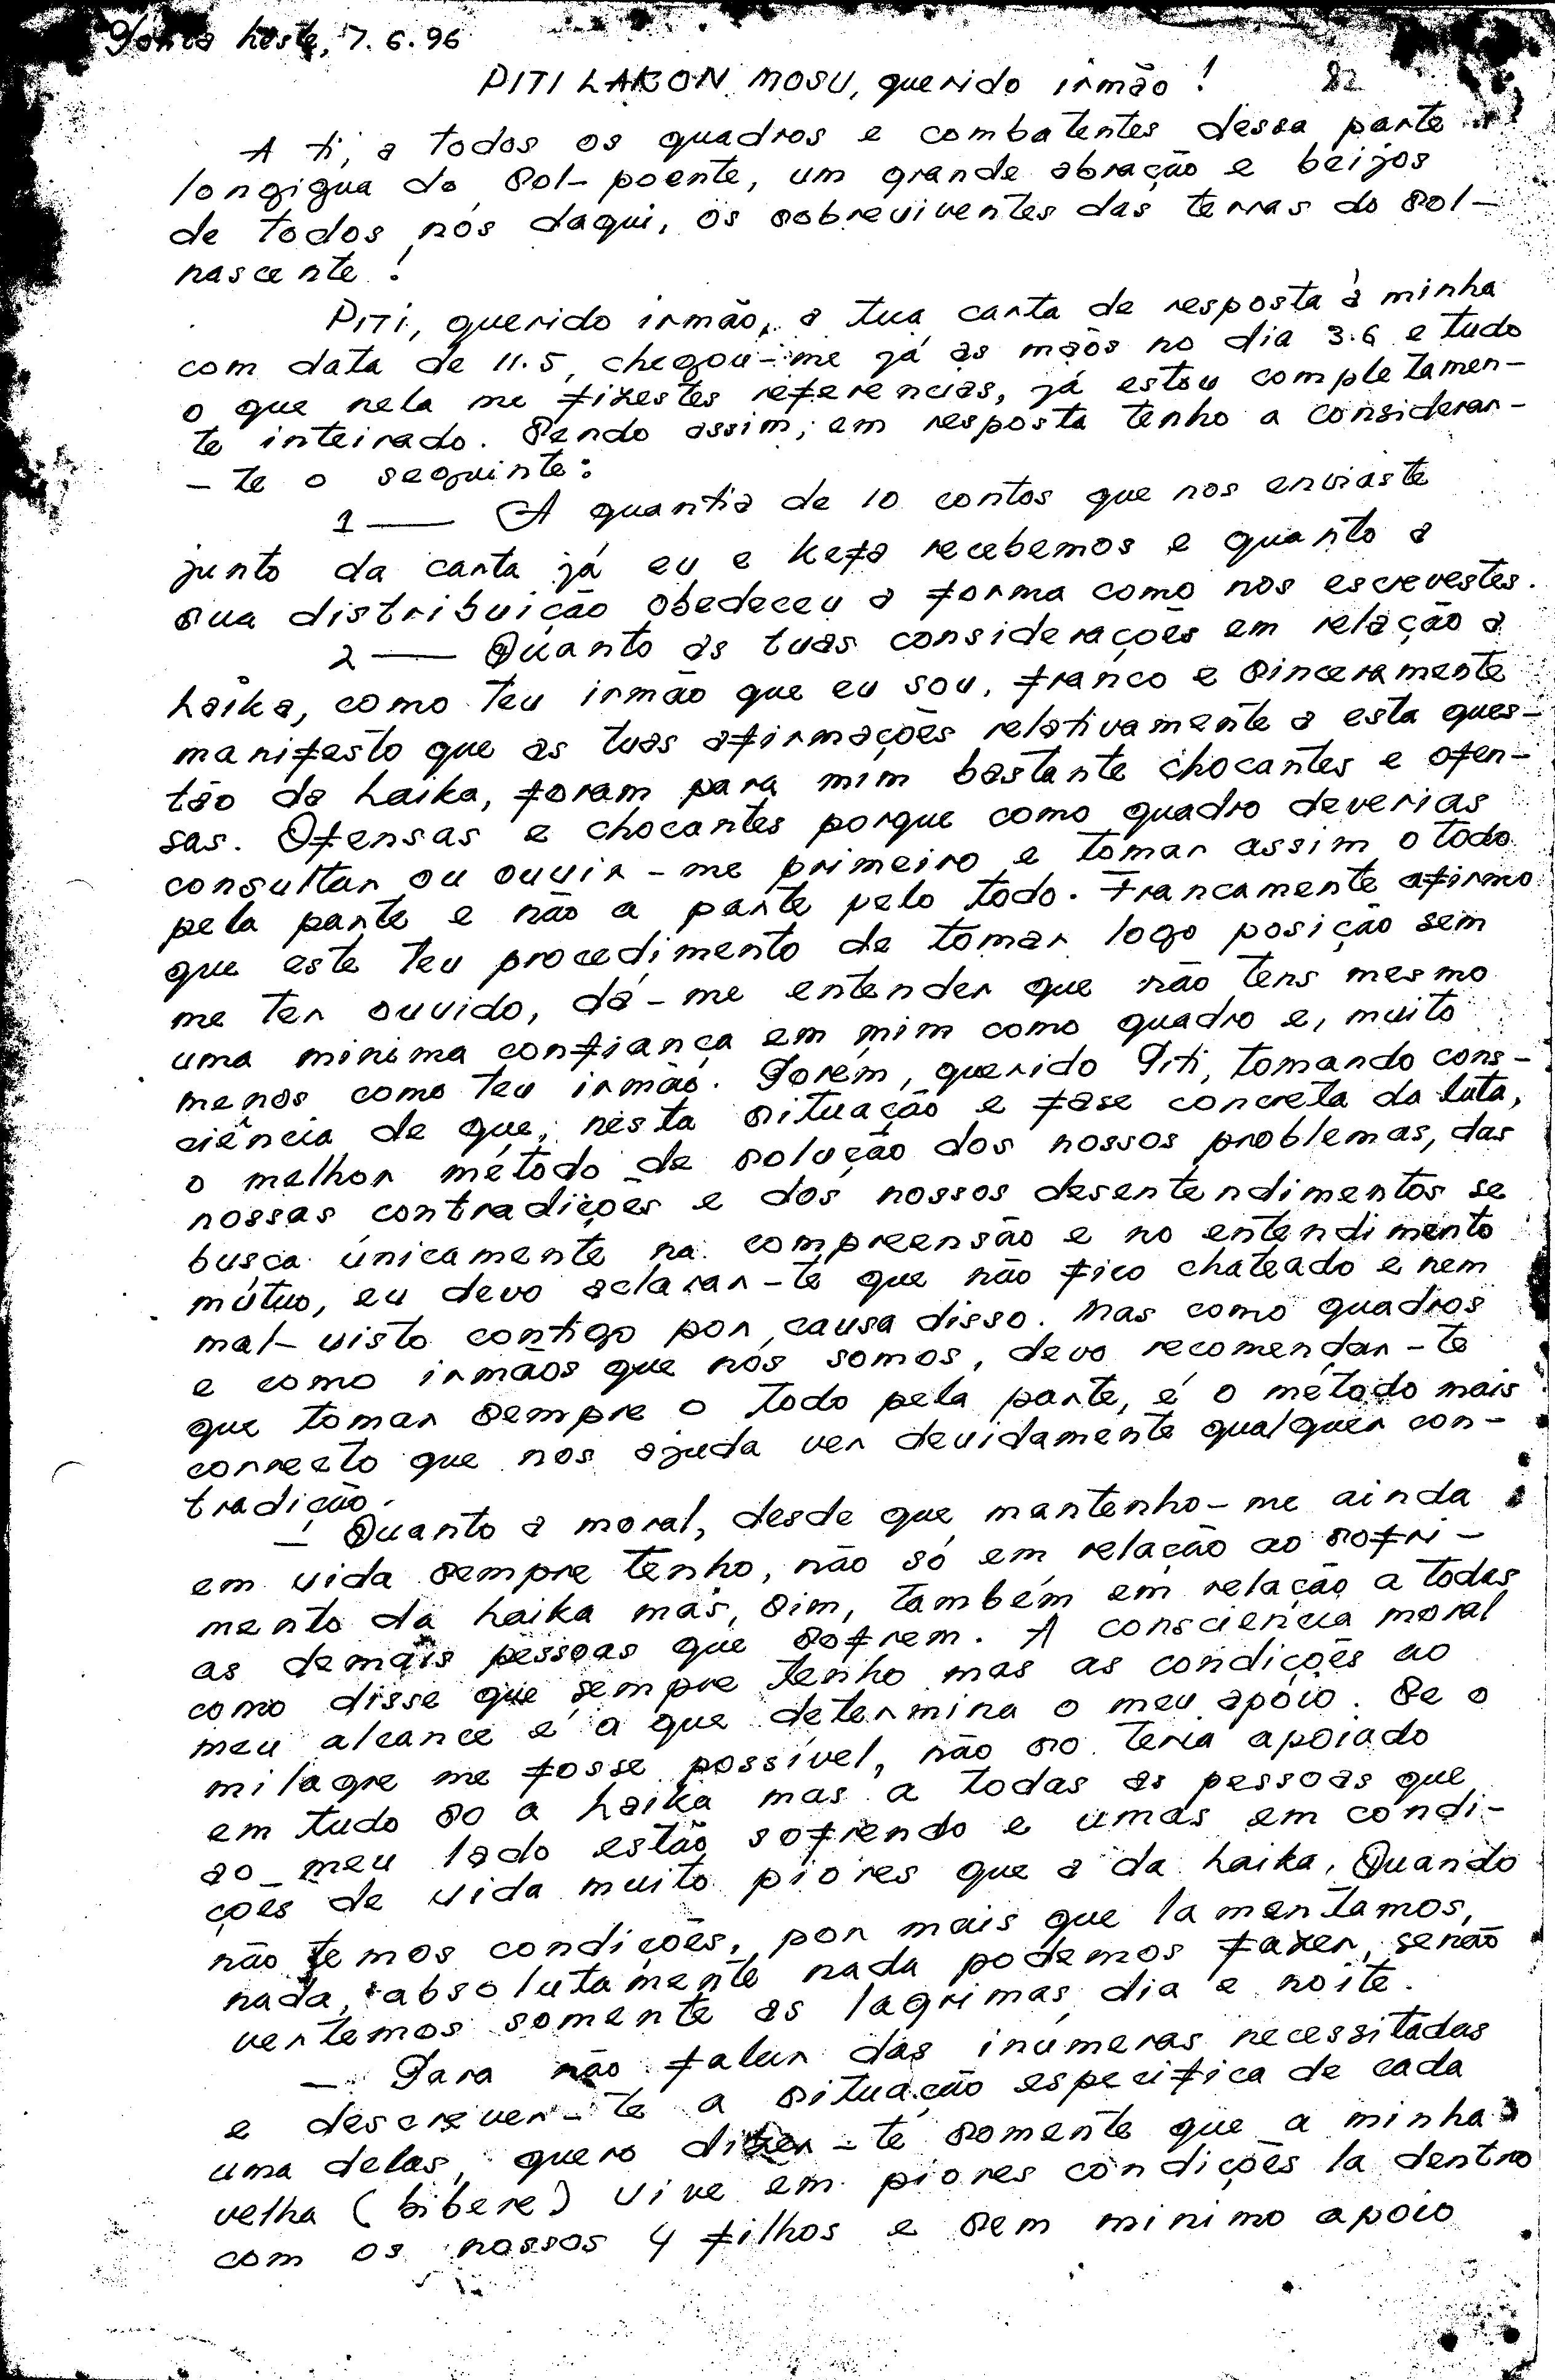 Ponta Leste, 7.6.96
82
PITI LAKON MOSU, querido irmão!
A ti, a todos os quadros e combatentes dessa parte
longigua do Sol-poente, um grande abração e beijos
de todos nós daqui, os sobreviventes das terras do Sol-
nascente!
Piti, querido irmão, a tua carta de resposta à minha
com data de 11.5, chegou-me já as mãos no dia 3.6 e tudo
o que nela me fizestes referencias, já estou completamen-
te inteirado. Sendo assim, em resposta tenho a considerar-
-te o seguinte:
1 — A quantia de 10 contos que nos enviaste
junto da carta já eu e Kefa recebemos e quanto a
sua distribuição obedeceu a forma como nos escrevestes.
2 — Quanto as tuas considerações em relação a
Laika, como teu irmão que eu sou, franco e sinceramente
manifesto que as tuas afirmações relativamente a esta ques-
tão da Laika, foram para mim bastante chocantes e ofen-
sas. Ofensas e chocantes porque como quadro deverias
consultar ou ouvir-me primeiro e tomar assim o todo
pela parte e não a parte pelo todo. Francamente afirmo
que este teu procedimento de tomar logo posição sem
me ter ouvido, dá-me entender que não tens mesmo
uma minima confiança em mim como quadro e, muito
menos como teu irmão. Porém, querido Piti, tomando cons-
ciência de que, nesta situação e fase concreta da luta,
o melhor método de solução dos nossos problemas, das
nossas contradições e dos nossos desentendimentos se
busca únicamente na compreensão e no entendimento
mútuo, eu devo aclarar-te que não fico chateado e nem
mal-visto contigo por causa disso. Mas como quadros
e como irmãos que nós somos, devo recomendar-te
que tomar sempre o todo pela parte, é o método mais
correcto que nos ajuda ver devidamente qualquer con-
tradição.
— Quanto a moral, desde que mantenho-me ainda
em vida sempre tenho, não só em relação ao sofri-
mento da Laika mas, sim, também em relação a todas
as demais pessoas que sofrem. A consciencia moral
como disse que sempre tenho mas as condições ao
meu alcance é a que determina o meu apóio. Se o
milagre me fosse possível, não so teria apoiado
em tudo so a Laika mas a todas as pessoas que
ao meu lado estão sofrendo e umas em condi-
ções de vida muito piores que a da Laika. Quando
não temos condições, por mais que lamentamos,
nada, absolutamente nada podemos fazer, senão
vertemos somente as lagrimas dia e noite.
— Para não falar das inúmeras necessitadas
e descrever-te a situação especifica de cada
uma delas, quero dizer-te somente que a minha
velha (bibere) vive em piores condições la dentro
com os nossos 4 filhos e sem minimo apoio